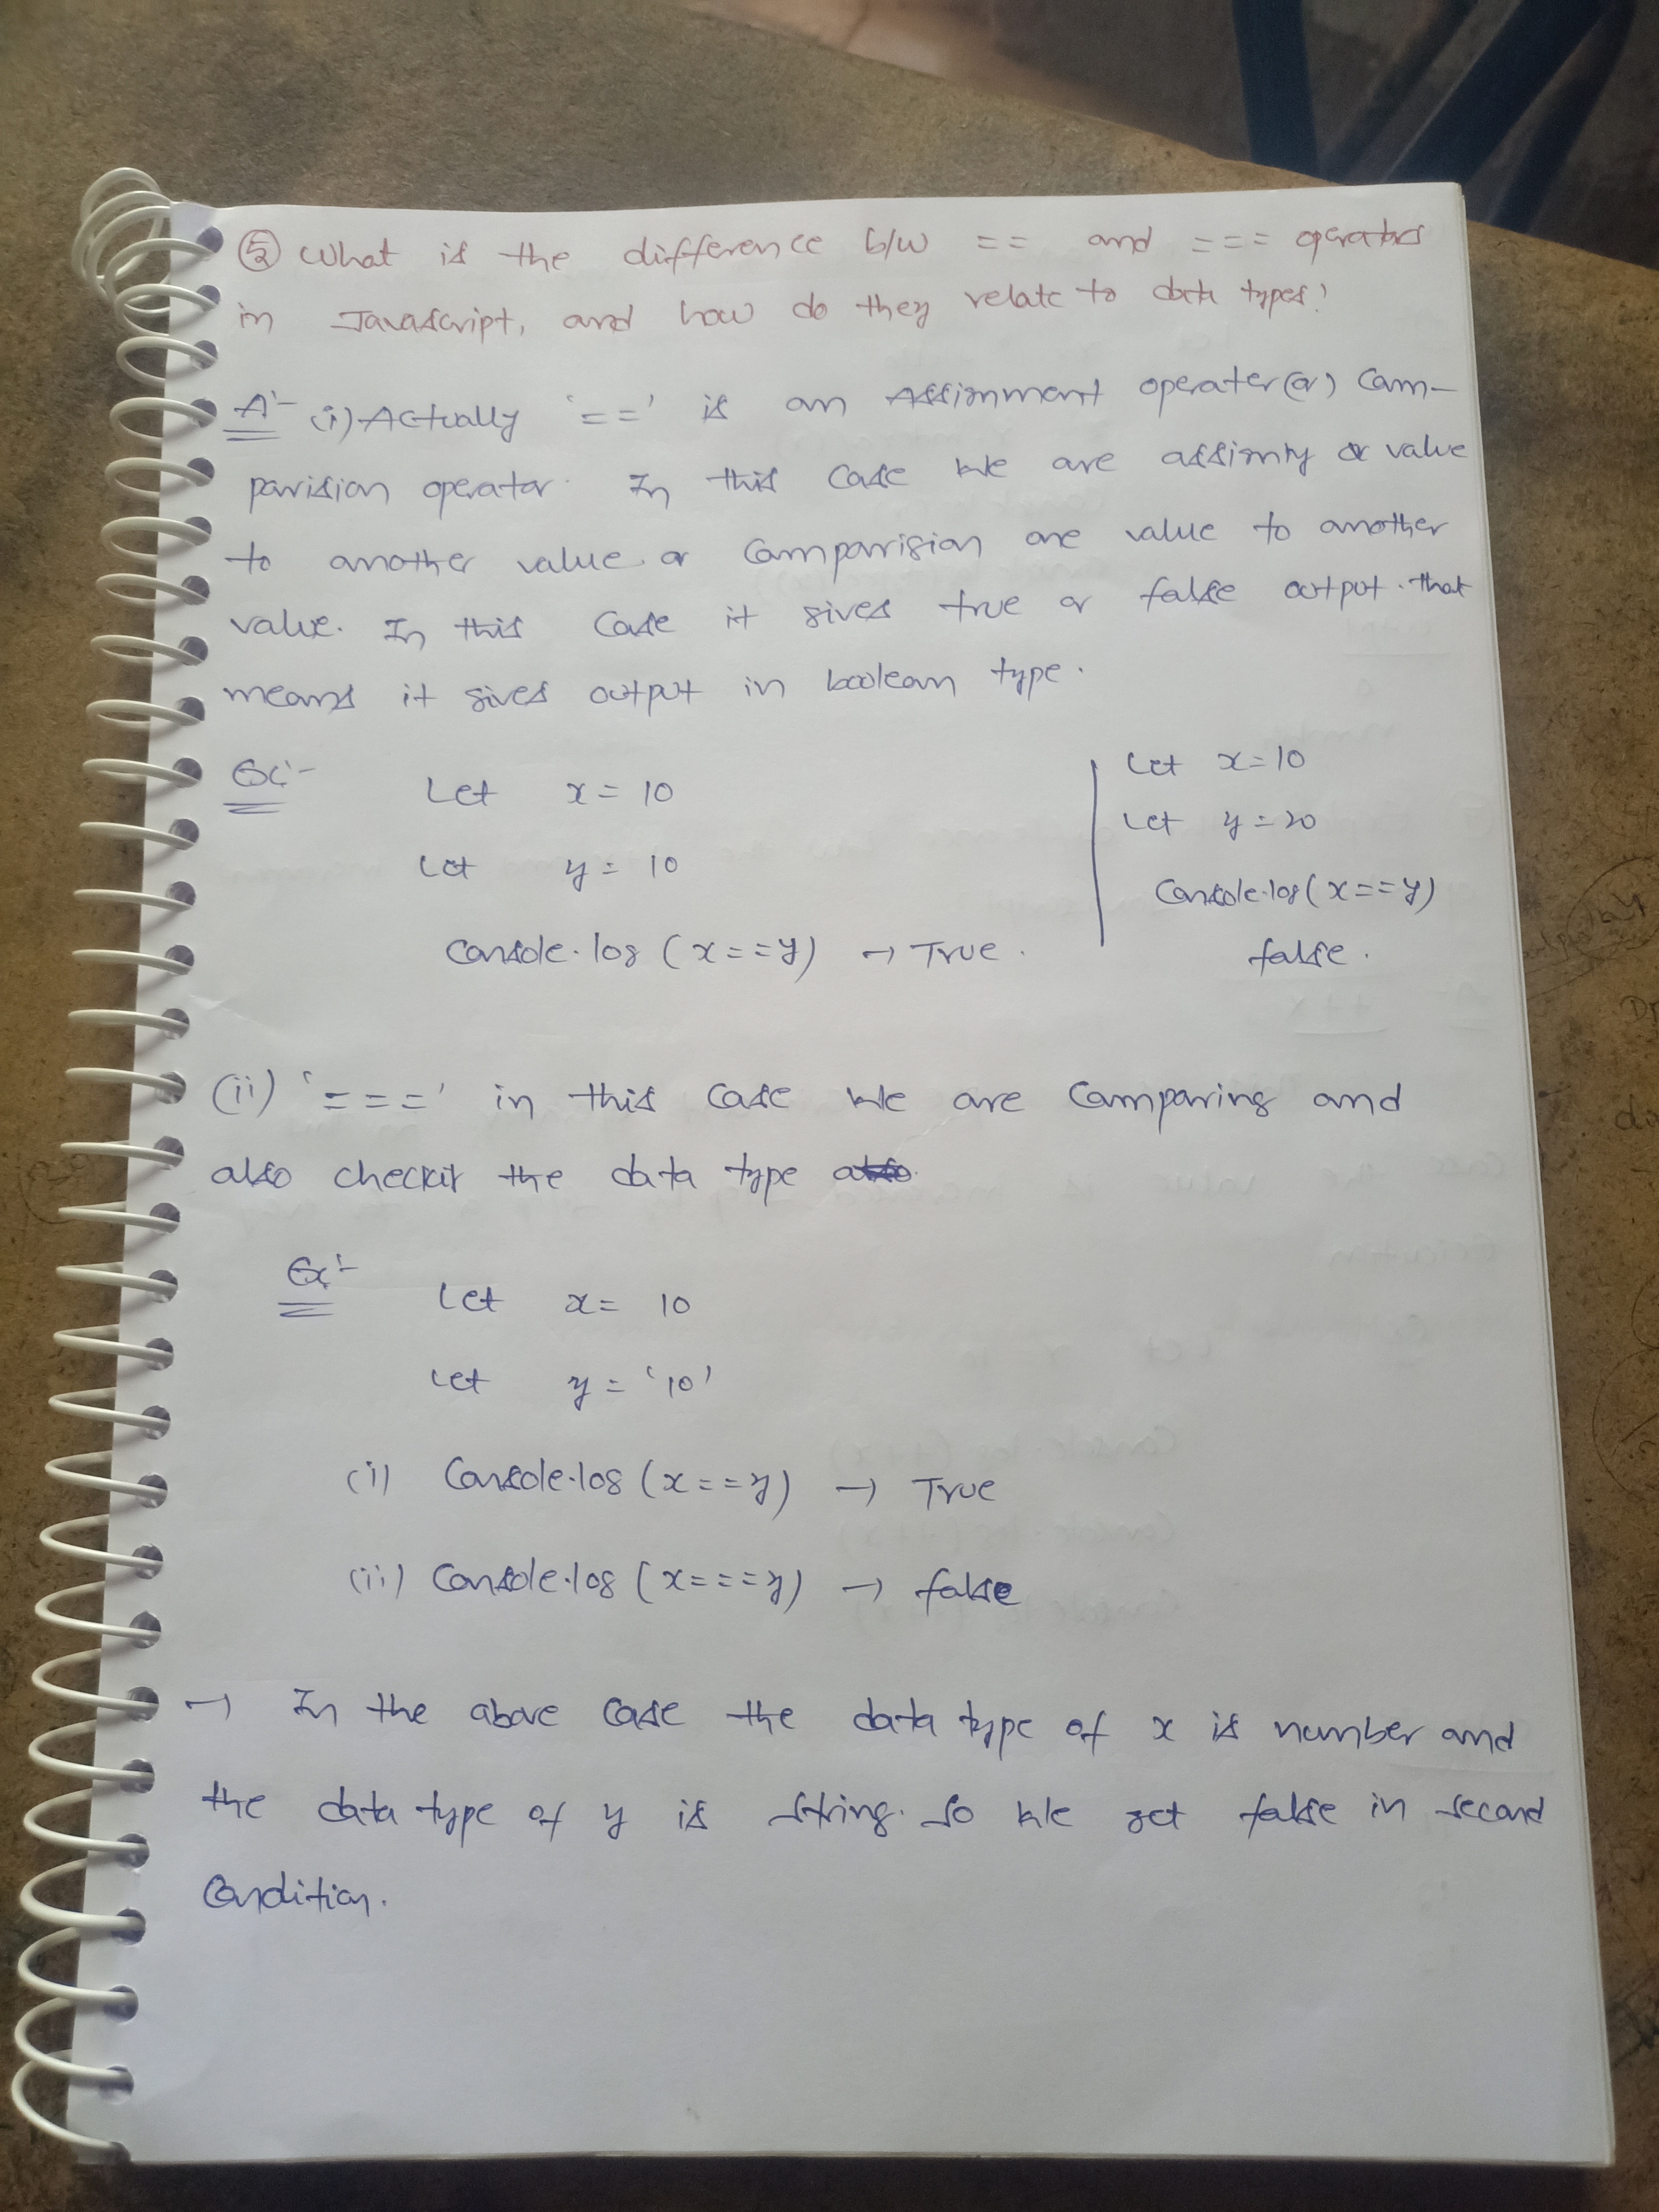 ⑤ What is the difference b/w == and === operators
in Javascript, and how do they relate to data types?
A:- (i) Actually '==' is an Assinment operater (or) Com-
parision operator. In this case we are assinity or value
to another value or Comparision one value to another
value. In this case it gives true or false output. that
means it gives output in boolean type.
Ex:- Let x = 10
Let y = 10
Console.log (x==y) → True.
Let x=10
Let y=20
Console.log(x==y)
false.
(ii) '===' in this case we are Comparing and
also checkit the data type
Ex:- Let x = 10
Let y = '10'
(i) Console.log (x==y) → True
(ii) Console.log (x===y) → false
→ In the above case the data type of x is number and
the data type of y is string. So we get false in second
Condition.